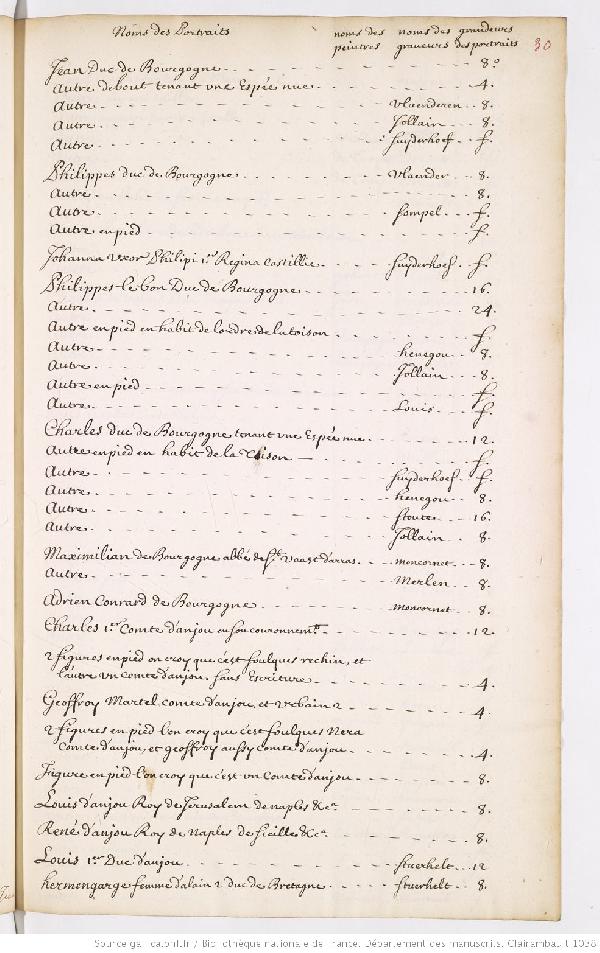 Noms des Portraits noms des peintres noms des graveurs grandeurs des portraits 30
Jean Duc de Bourgogne 8.o
Autre debout tenant une Espée nue 4.
Autre Vlaenderen 8.
Autre Jollain 8.
Autre Suyderhoef f.
Philippes duc de Bourgogne Vlaender 8.
Autre 8.
Autre Sompel f.
Autre en pied f.
Johanna Uxor Philipi 1.i Regina Castillie Suyderhoef f.
Philippes le bon Duc de Bourgogne 16.
Autre 24.
Autre en pied en habit de lordre de la toison f.
Autre henegou 8.
Autre Jollain 8.
Autre en pied f.
Autre Louis f.
Charles duc de Bourgogne tenant une Espée nue 12
Autre en pied en habit de la Toison f.
Autre Suyderhoef f.
Autre henegou 8.
Autre 16.
Autre Jollain 8.
Maximilian de Bourgogne abbé de St. Vaast d'arras moncornet 8.
Autre Merlen 8.
Adrien Conrard de Bourgogne moncornet 8.
Charles 1.er Comte d'anjou ou son couronnemt. 12.
2 figures en pied on croy que c'est foulques rechin, et
l'autre un comte d'anjou sans Escriture 4.
Geoffroy Martel comte d'anjou et Urbain 2 4.
2 figures en pied l'on croy que c'est foulques Nera
Comte d'anjou, et geoffroy aussy comte d'anjou 4.
Figure en pied l'on croy que c'est un Comte d'anjou 8.
Louis d'anjou Roy de Jerusalem de naples &c.a 8.
René d'anjou Roy de Naples de Sicille &c.a 8.
Louis 1.er Duc d'anjou Stuerhelt 12
hermengarge femme d'alain 2 duc de Bretagne Stuerhelt 8.
Source gallica.bnf.fr / Bibliothèque nationale de France. Département des manuscrits. Clairambault 1038